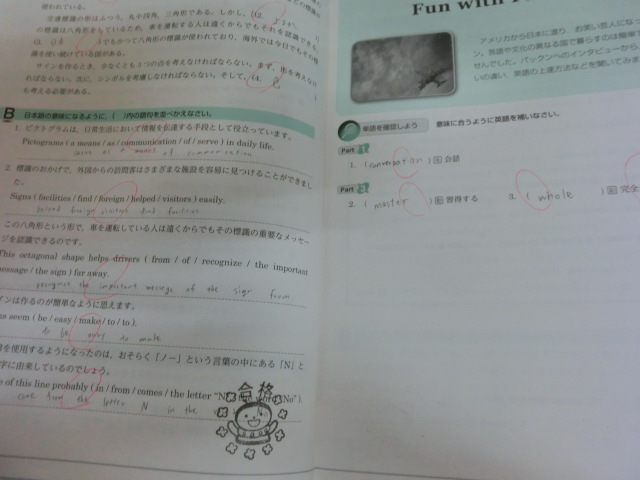 使われている。
交通標識の形はふつう，丸や四角，三角形である。しかし，(2.
の標識は八角形をしているため，車を運転する人は遠くからでもそれを認識できる。
(3.
)でもかつて八角形の標識が使われており，海外では今日でもその標
識を使い続けている国がある。
サインを作るとき，少なくとも3つの点を考えなければならない。まず，形を考えな
ければならない。次に，シンボルを考慮しなければならない。そして，(4.
も考える必要がある。
B 日本語の意味になるように，( )内の語句を並べかえなさい。
1. ピクトグラムは，日常生活において情報を伝達する手段として役立っています。
Pictograms ( a means / as / communication / of / serve ) in daily life.
serve as a means of communication
2. 標識のおかげで，外国からの訪問客はさまざまな施設を容易に見つけることができまし
た。
Signs ( facilities / find / foreign / helped / visitors ) easily.
helped foreign visitors find facilities
この八角形という形で，車を運転している人は遠くからでもその標識の重要なメッセー
ジを認識できるのです。
This octagonal shape helps drivers ( from / of / recognize / the important
message / the sign ) far away.
recognize the important message of the sign from
インは作るのが簡単なように思えます。
ns seem ( be / easy / make / to / to ).
to be easy to make
を使用するようになったのは，おそらく「ノー」という言葉の中にある「N」と
字に由来しているのでしょう。
e of this line probably ( in / from / comes / the letter "N"
"No" ).
come from the letter N in the
No
合格
Fun with
アメリカから日本に渡り，お笑い芸人になっ
ン。英語や文化の異なる国で暮らすのは簡単で
せんでした。パックンへのインタビューから
いの違い，英語の上達方法などを聞いてみま
単語を確認しよう 意味に合うように英語を補いなさい。
Part 1
1. ( conversation ) 名 会話
Part 2
2. ( master ) 動 習得する 3. ( whole ) 形 完全